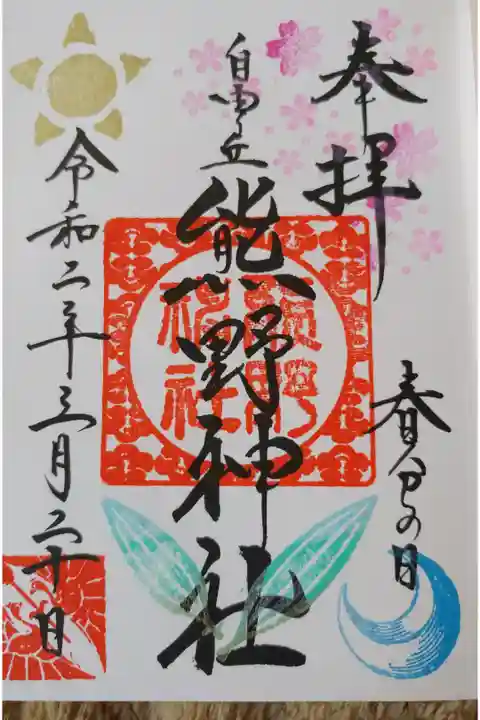 奉拝
春分の日
自由丘
熊野神社
令和二年三月二十日